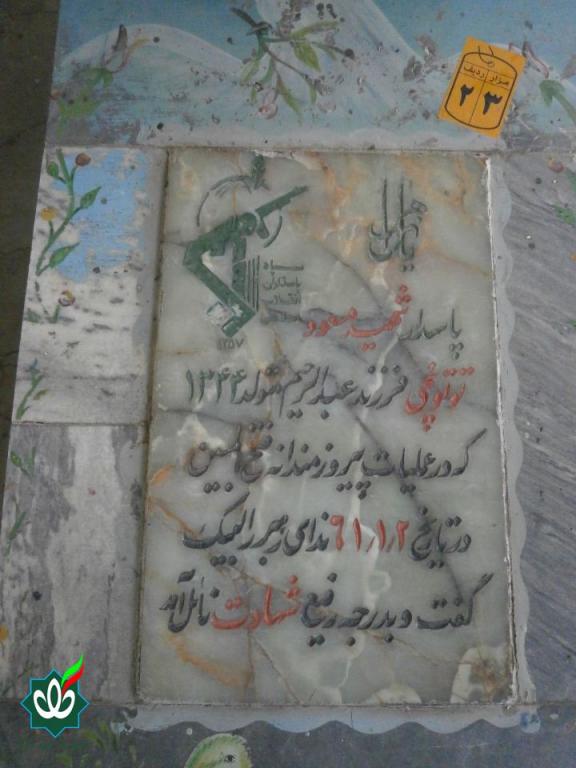 رضا
مزار ردیف
۲ ۳
سپاه
پاسداران
انقلاب
اسلامی
۱۳۵۷
پاسدار شهید مسعود
توتونچی فرزند عبدالرحیم متولد ۱۳۴۴
که در عملیات پیروزمندانه فتح المبین
در تاریخ ۶۱٫۱٫۲ ندای رهبر را لبیک
گفت و بدرجه رفیع شهادت نائل آمد